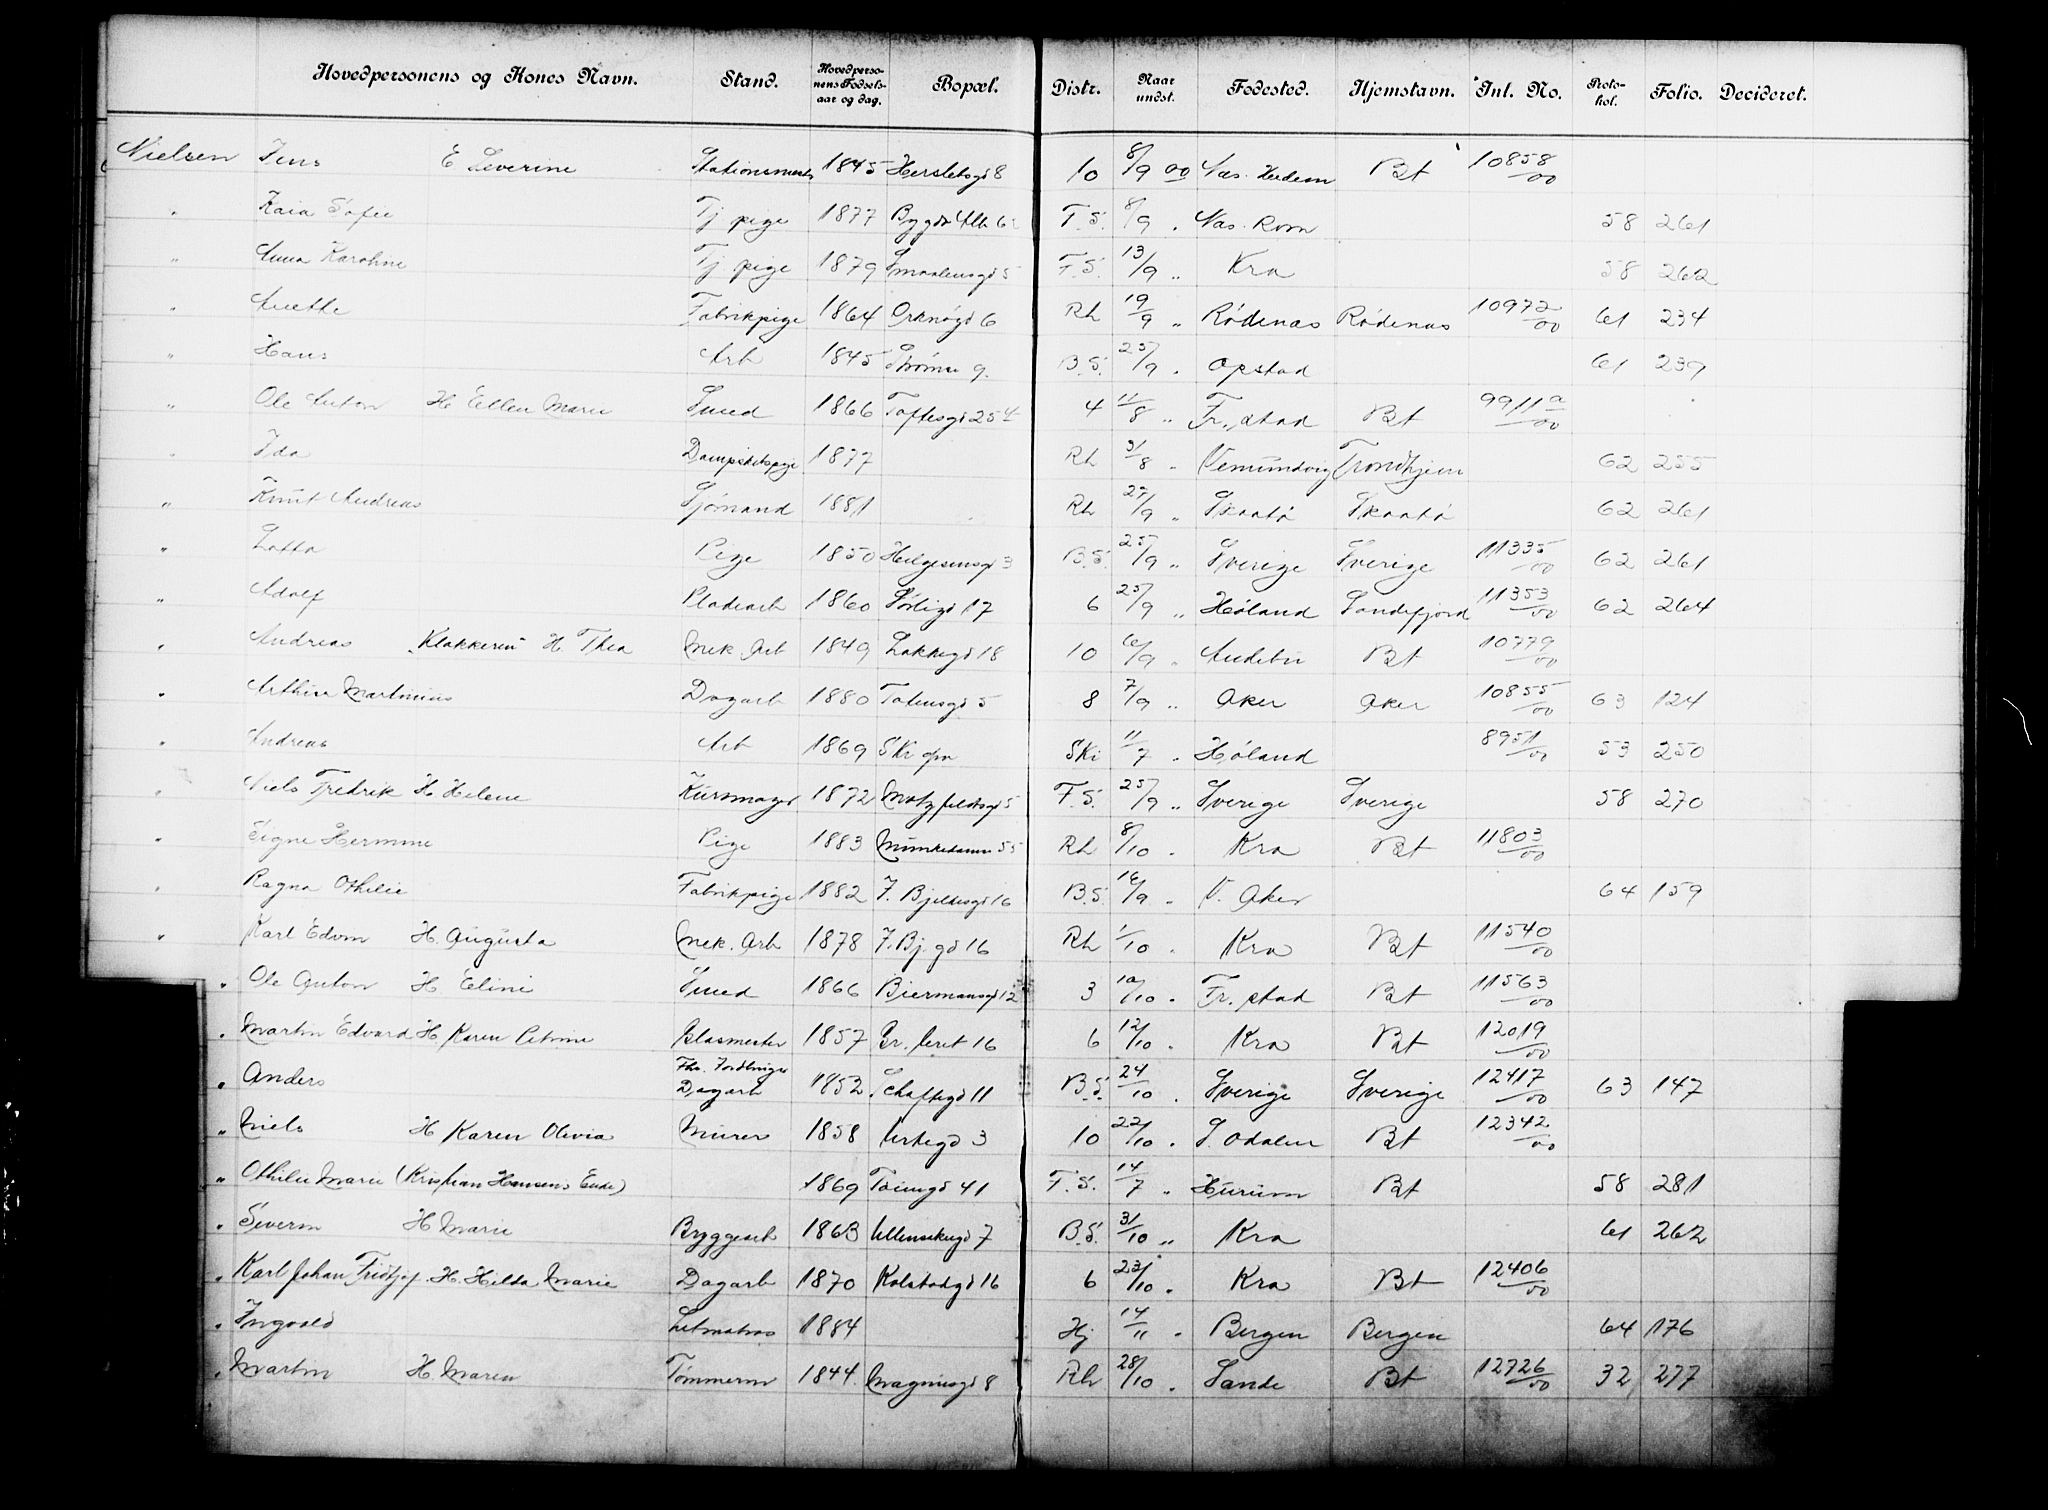 Hovedpersonens og Kones Navn. Stand. Hovedpersonens Fødselsaar og dag. Bopæl. Distr. Naar undst. Fødested. Hjemstavn. Inl. No. Protokol. Folio. Decideret.
Nielsen Jens E Severine Stationsmester 1845 Hersletsgd 8 10 8/9 00 Næs. Hedem Bt 10858/00
" Kaia Sofie Tj pige 1877 Bygdø Alle F.S. 8/9 " Næs. Rom 58 261
" Anna Karoline Tj pige 1879 Smaalensgd 5 F.S. 13/9 " Kra 58 262
" Anette Fabrikpige 1864 Orknøgd 6 Rh 19/9 " Rødenæs Rødenæs 10972/00 61 234
" Hans Arb 1845 Strømsv 9 B.S. 25/9 " Opstad 61 239
" Ole Anton H Ellen Marie Smed 1866 Toftesgd 25 4 11/8 " Fr.stad Bt 9911a/00
" Ida Dampskibspige 1877 Rh 3/8 " Vemundvig Trondhjem 62 255
" Knut Andreas Sjømand 1881 Rh 27/9 " Skaatø Skaatø 62 261
" Lotta Pige 1850 Helgesensgd 3 B.S. 25/9 " Sverige Sverige 11335/00 62 261
" Adolf Pladearb 1860 Sørligd 17 6 25/9 " Høland Sandefjord 11353/00 62 264
" Andreas "Klokkeren" H. Thea Mek. Arb 1849 Lakkegd 18 10 6/9 " Andebu Bt 10779/00
" Arthur Martinius Dagarb 1880 Totensgd 5 8 7/9 " Aker Aker 10855/00 63 124
" Andreas Arb 1869 Ski Ski 11/7 " Høland 8951/00 53 250
" Niels Fredrik H Helene Kurvmager 1872 Motzfeldtsgd 5 F.S. 25/9 " Sverige Sverige 58 270
" Signe Hermine Pige 1883 Munkedamsv 55 Rh 8/10 " Kra Bt 11803/00
" Ragna Othilie Fabrikpige 1882 J. Bjelkesgd 16 B.S. 16/9 " V. Aker 64 159
" Karl Edvin H. Augusta Mek. Arb 1878 J. Bj. gd 16 Rh 1/10 " Kra Bt 11540/00
" Ole Anton H Eline Smed 1866 Biermansgd 12 3 10/10 " Fr. stad Bt 11563/00
" Martin Edvard H Karen Petrine Glasmester 1857 Gr. leret 16 6 12/10 " Kra Bt 12019/00
" Anders Dagarb 1852 Schaftegd 11 B.S. 24/10 " Sverige Sverige 12417/00 63 147
" Niels H Karen Olivia Murer 1858 Urtegd 3 10 22/10 " S. Odalen Bt 12342/00
" Othilie Marie (Kristian Hansens Enke) 1869 Tøiengd 41 F.S. 14/7 " Hurum Bt 58 281
" Severin H Marie Byggearb 1863 Ullensakergd 7 B.S. 31/10 " Kra 61 262
" Karl Johan Fridtjof H. Hilda Marie Dagarb 1870 Kolstadgd 16 6 23/10 " Kra Bt 12406/00
" Ingvald Letmatros 1884 Hj 14/11 " Bergen Bergen 64 176
" Martin H. Maren Tømmerm 1844 Magnusgd 8 Rh 28/10 " Sande Bt 12726/00 32 277